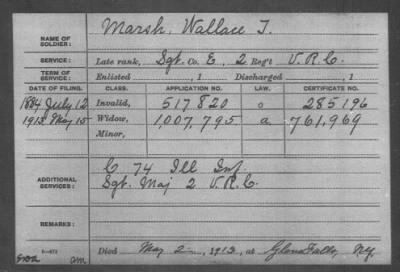 NAME OF SOLDIER: Marsh, Wallace T.
SERVICE: Late rank, Sgt. Co. E, 2 Reg't V.R.C.
TERM OF SERVICE: Enlisted , 1 Discharged , 1
DATE OF FILING. CLASS. APPLICATION NO. LAW. CERTIFICATE NO.
1884 July 12 Invalid, 517820 o 285196
1913 May 15 Widow, 1,007,795 a 761,969
Minor,
ADDITIONAL SERVICES: C 74 Ill Inf.
Sgt. Maj 2 V.R.C.
REMARKS:
Died May 2, 1913, at Glens Falls, N.Y.